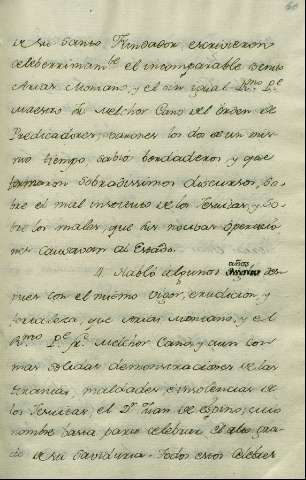 de su Santo Fundador, escrivieron
celeberrimam.te el incomparable Benito
Arias Montano, y el sin igual R.mo P.e
Maestro fr. Melchor Cano del Orden de
Predicadores, varones los dos de un mis-
mo tiempo, sabios verdaderos y que
formaron sobradissimos discursos, so-
bre el mal instituto de los Jesuitas, y so-
bre los males, que sus nocivas operacio-
nes causavan al Estado.
4. Habló algunos años des-
pues con el mismo vigor, erudicion, y
entereza, que Arias Montano, y el
R.mo P.e fr. Melchor Cano, y aun con
mas solidas demonstraciones de las
tiranias, maldades e insolencias de
los Jesuitas, el D.r Juan de Espino, cuio
nombre basta para celebrar el alto gra-
do de su saviduria. Todos estos celebres